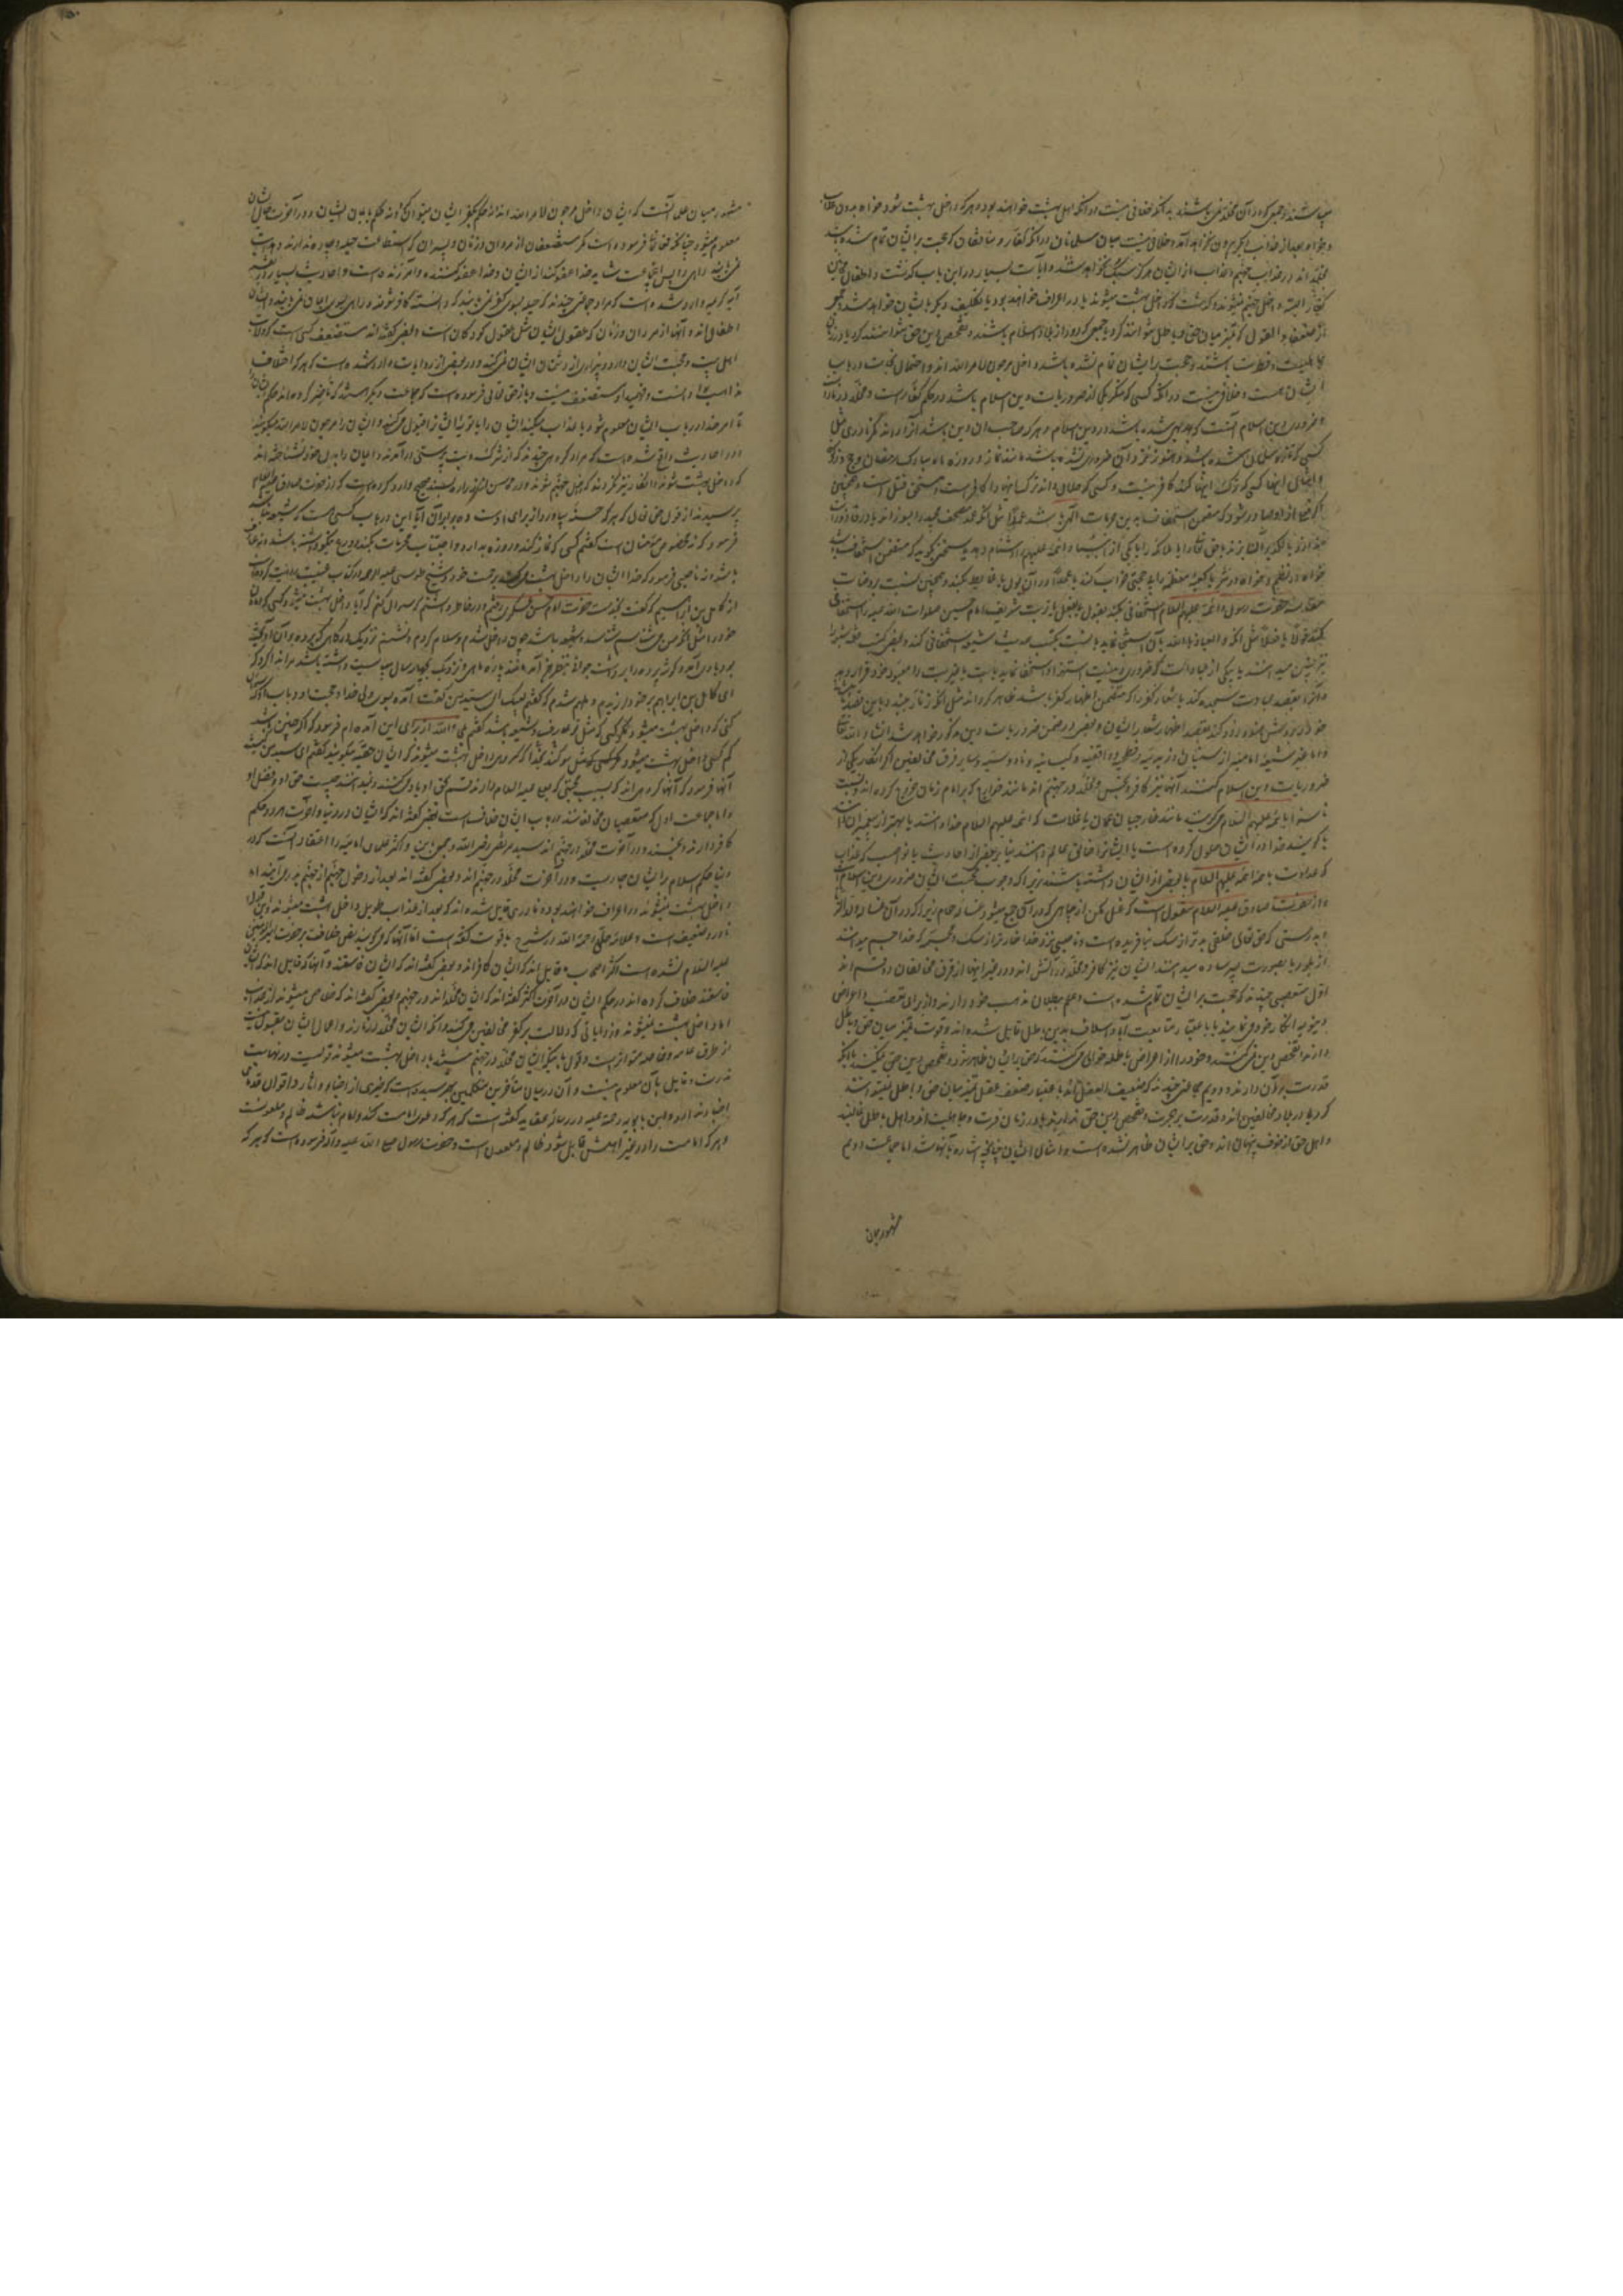 میباشند و جمعی که در آن مخلد نمی باشند بدانکه خلافی نیست در آنکه اهل بهشت خواهند بود و هر که داخل بهشت شود خواه بدون عذاب
و خواه بعد از عذاب دیگر بیرون نخواهد آمد و خلافی نیست میان مسلمانان در آنکه کفار و منافقان که حجت بر ایشان تمام شده باشد
مخلد اند در عذاب جهنم و عذاب از ایشان هرگز سبک نخواهد شد و آیات بسیار در این باب گذشت و اطفال و مجانین
کفار البته داخل جهنم نمیشوند و گذشت که داخل بهشت میشوند یا در اعراف خواهند بود یا تکلیف دیگر بایشان خواهد شد و جمعی
از ضعفاء العقول که تمیز میان حق و باطل نتوانند کرد یا جمعی که دور از بلاد اسلام باشند و تفحص دین حق نتوانند کرد یا در زمان
جاهلیت و فطرت باشند و حجت بر ایشان تمام نشده باشد داخل مرجون لامر الله اند و احتمال نجات در باب
ایشان هست و خلافی نیست در آنکه کسی که منکر یکی از ضروریات دین اسلام باشد در حکم کفار است و مخلد در نار است
و ضروری دین اسلام آنست که بدیهی شده باشد در دین اسلام و هر که صاحب آن دین باشد آنرا داند مگر نادری مثل
کسی که تازه مسلمان شده باشد و هنوز نزد او آن ضروری نشده باشد مانند نماز و روزه ماه مبارک رمضان و حج و زکوة
و امثال اینها کسی که ترک اینها کند کافر نیست و کسی که حلال داند ترک اینها را کافر است و مستحق قتل است و همچنین
اگر فعلی از او صادر شود که متضمن استخفاف بدین حرمات الهی باشد عمدا مثل آنکه عمدا مصحف مجید را بسوزاند یا در قاذورات
بیندازد یا لگد بر آنها بزند یا حق تعالی را یا ملائکه را یا یکی از انبیا و ائمه علیهم السلام را دشنام دهد یا سخنی گوید که متضمن استخفاف باشد
خواه در نظم و خواه در نثر یا کعبه معظمه را بی جهتی خراب کند یا عمدا در آن بول یا غایط بکند و همچنین نسبت بروضات
مقدسه حضرت رسول و ائمه علیهم السلام استخفافی بکند بقول یا بفعل یا تربت شریف امام حسین صلوات الله علیه را استخفافی
بکند قولا یا فعلا مثل آنکه و العیاذ بالله بآن استنجا نماید یا نسبت بکتب حدیث شیعه استخفافی کند و بعضی کتب فقه شیعه را
نیز چنین میدانند یا بیکی از عبادات که ضروری دینست استهزا و استخفاف نماید یا بت یا غیر بت را معبود خود قرار دهد
و آنرا بقصد عبادت سجده کند یا شعار کفر را که متضمن اظهار کفر باشد ظاهر گرداند مثل آنکه زنار بندد و باین قصد باشد
خود را و مثل هنود زرد کند بقصد اظهار شعار ایشان و بعضی در ضمن ضروریات دین مذکور خواهد شد انشاء الله تعالی
و اما غیر شیعه امامیه از سنیان و از زیدیه و فطحیه و واقفیه و کیسانیه و ناووسیه و سایر فرق مخالفین اگر انکار یکی از
ضروریات دین اسلام کنند آنها نیز کافر و نجس و مخلد در جهنم اند مانند خوارج که بر امام زمان خروج کرده اند و نسبت
ناسزا بائمه علیهم السلام میگویند مانند خارجیان عمان یا غلات که ائمه علیهم السلام خدا دانند یا بهتر از پیغمبران دانند
یا گویند خدا در ایشان حلول کرده است یا ایشانرا خالق عالم دانند بنا بر بعضی از احادیث یا نواصب که عداوت
که عداوت با همه ائمه علیهم السلام یا بعضی از ایشان داشته باشند زیرا که وجوب محبت ایشان ضروری دین اسلام است
و از حضرت صادق علیه السلام منقول است که غسل مکن از چاهی که در آن جمع میشود غساله حمام زیرا که در آن غساله ولد الزنا
و بدرستی که حق تعالی خلقی بدتر از سگ نیافریده است و ناصبی نزد خدا خوار تر از سگ و مجسمه که خدا را جسم میدانند
از بلور یا بصورت پسر ساده میدانند ایشان نیز کافر و مخلد در آتش اند و در غیر اینها از فرق مخالفان دو قسم اند
اول متعصبی چند اند که حجت بر ایشان تمام شده است و علم ببطلان مذهب خود دارند و از برای تعصب و اغراض
دنیویه انکار خود می نمایند یا باعتبار متابعت آباء و اسلاف بدین باطل قایل شده اند و قوت تمیز میان حق و باطل
دارند و تفحص دین نمی کنند و خود را از اغراض باطله خالی نمیکنند که حق بر ایشان ظاهر شود و تفحص دین حق نمیکنند با آنکه
قدرت بر آن دارند و دویم جماعتی چند اند که ضعیف العقل اند یا باعتبار ضعف عقل تمیز میان حق و باطل نمیتوانند
کرد یا در بلاد مخالفین اند و قدرت بر هجرت و تفحص دین حق ندارند یا در زمان فترت و جاهلیت اند و اهل باطل غالبند
و اهل حق از خوف پنهان اند و حق بر ایشان ظاهر نشده است و امثال ایشان چنانچه اشاره بآنها شد اما جماعت دویم
مشهور میان
مشهور میان علما آنست که ایشان داخل مرجون لامر الله اند نه حکم بکفر ایشان میتوان کرد و نه حکم بایمان ایشان و در آخرت حال ایشان
معلوم میشود چنانکه حق تعالی فرموده است مگر مستضعفان از مردان و زنان و پسران که استطاعت حیله و چاره ندارند و هدایت
نمی یابند راهی را پس آن جماعت شاید خدا عفو کند از ایشان و خدا عفو کننده و آمرزنده است و احادیث بسیار در تفسیر
آیه کریمه وارد شده است که مراد جماعتی چند اند که حیله بسوی کفر نمی یابند که دانسته کافر شوند و راهی بسوی ایمان نمی یابند و ایشان
اطفال اند و آنها از مردان و زنان که عقول ایشان مثل عقول کودکان است و بعضی گفته اند مستضعف کسی است که ولایت
اهل بیت و محبت ایشان دارد و بیزاری از دشمنان ایشان نمی کند و در بعضی از روایات وارد شده است که هر که اختلاف
مذاهب را دانست و فهمید او مستضعف نیست و باز حق تعالی فرموده است که جماعت دیگر هستند که تأخیر کرده اند حکم ایشان را
تا امر خدا در باب ایشان معلوم شود یا عذاب میکند ایشان را یا توبه ایشان را قبول می کند و ایشان را مرجون لامر الله میگویند
و در احادیث واقع شده است که مراد گروهی چند اند که از شرک و بت پرستی در آمدند و ایمان را بدل خود نشناخته اند
که داخل بهشت شوند و انکار نیز نکرده اند که داخل جهنم شوند و در محاسن از زراره بسند صحیح وارد کرده است که از حضرت صادق علیه السلام
پرسیدند از قول حق تعالی که هر که حسنه بیاورد از برای او است ده برابر آن آیا این در باب کسی هست که شیعه نباشد
فرمود که نه مخصوص مؤمنان است گفتم کسی که نماز کند و روزه بدارد و اجتناب محرمات بکند و ورع نیکو داشته باشد و نه عارف
باشد و نه ناصبی فرمود که خدا ایشان را داخل بهشت میکند برحمت خود و شیخ طوسی علیه الرحمه در کتاب غیبت روایت کرده است
از کامل بن ابراهیم که گفت بخدمت حضرت امام حسن عسکری رفتم و در خاطر داشتم که سوال کنم که آیا داخل بهشت میشود کسی که
خود را مثل آنچه من می شناسم شناسد و شیعه باشد چون داخل شدم و سلام کردم و نشستم نزدیک درگاهی که پرده بر آن آویخته
بود بادی آمد و گوشه پرده را برداشت جوانی بنظرم آمد مانند پاره ماهی و نزدیک بچهار سال میبایست داشته باشد
ای کامل بن ابراهیم بر خود لرزیدم و ملهم شدم که گفتم لبیک ای سید من گفت آمده بسوی ولی خدا و حجت او و باب او که سوال
کنی که داخل بهشت میشود مگر کسی که مثل تو عارف و شیعه باشد گفتم بلی والله از برای این آمده ام فرمود که اگر چنین باشد
کم کسی داخل بهشت میشود بخدا سوگند که گروهی داخل بهشت میشوند که ایشان را حقیه میگویند گفتم ای سید من کیستند
آنها فرمود که آنها گروهی اند که بسبب محبتی که بعلی علیه السلام دارند قسم بحق او یاد می کنند و نمیدانند چیست حق او و فضل او
و اما جماعت اول که متعصبان مخالفانند در باب ایشان خلاف است بعضی گفته اند که ایشان در دنیا و آخرت هر دو حکم
کافر دارند و نجسند و در آخرت مخلد در جهنم اند سید مرتضی رضی الله و جمعی براین و اکثر علمای امامیه را اعتقاد آنست که در
دنیا حکم اسلام بر ایشان جاریست و در آخرت مخلد در جهنم اند و بعضی گفته اند بعد از دخول جهنم از جهنم بدر می آیند اما
داخل بهشت نمیشوند و در اعراف خواهند بود و نادری قایل شده اند که بعد از عذاب طویل داخل بهشت میشوند و این قول
نادر و ضعیف است و علامه حلی رحمة الله در شرح یاقوت گفته است اما آنها که می گویند نص خلافت بر حضرت امیرالمومنین
علیه السلام نشده است اکثر اصحاب ما قایل اند که ایشان کافر اند و بعضی گفته اند که ایشان فاسقند و آنها که قایل اند که ایشان
فاسقند خلاف کرده اند در حکم ایشان در آخرت اکثر گفته اند که ایشان مخلد اند در جهنم و بعضی گفته اند که خلاص میشوند از عذاب
اما داخل بهشت نمیشوند و روایاتی که دلالت بر کفر مخالفین می کند و آنکه ایشان مخلد در نارند و اعمال ایشان مقبول نیست
از طرق عامه و خاصه متواتر است و قول بآنکه ایشان مخلد در جهنم نمیباشند یا داخل بهشت میشوند قولیست در نهایت
ندرت و قایل بآن معلوم نیست و آن در میان متأخرین متکلمین بهم رسیده است که خبری از اخبار و آثار و اقوال قدماء
اخبار ندارند و ابن بابویه رحمة علیه در رساله عقاید گفته است که هر که دعوی امامت کند و امام نباشد ظالم و ملعونست
و هر که امامت را در غیر اهلش قایل شود ظالم و ملعون است و حضرت رسول صلی الله علیه و آله فرموده است که هر که